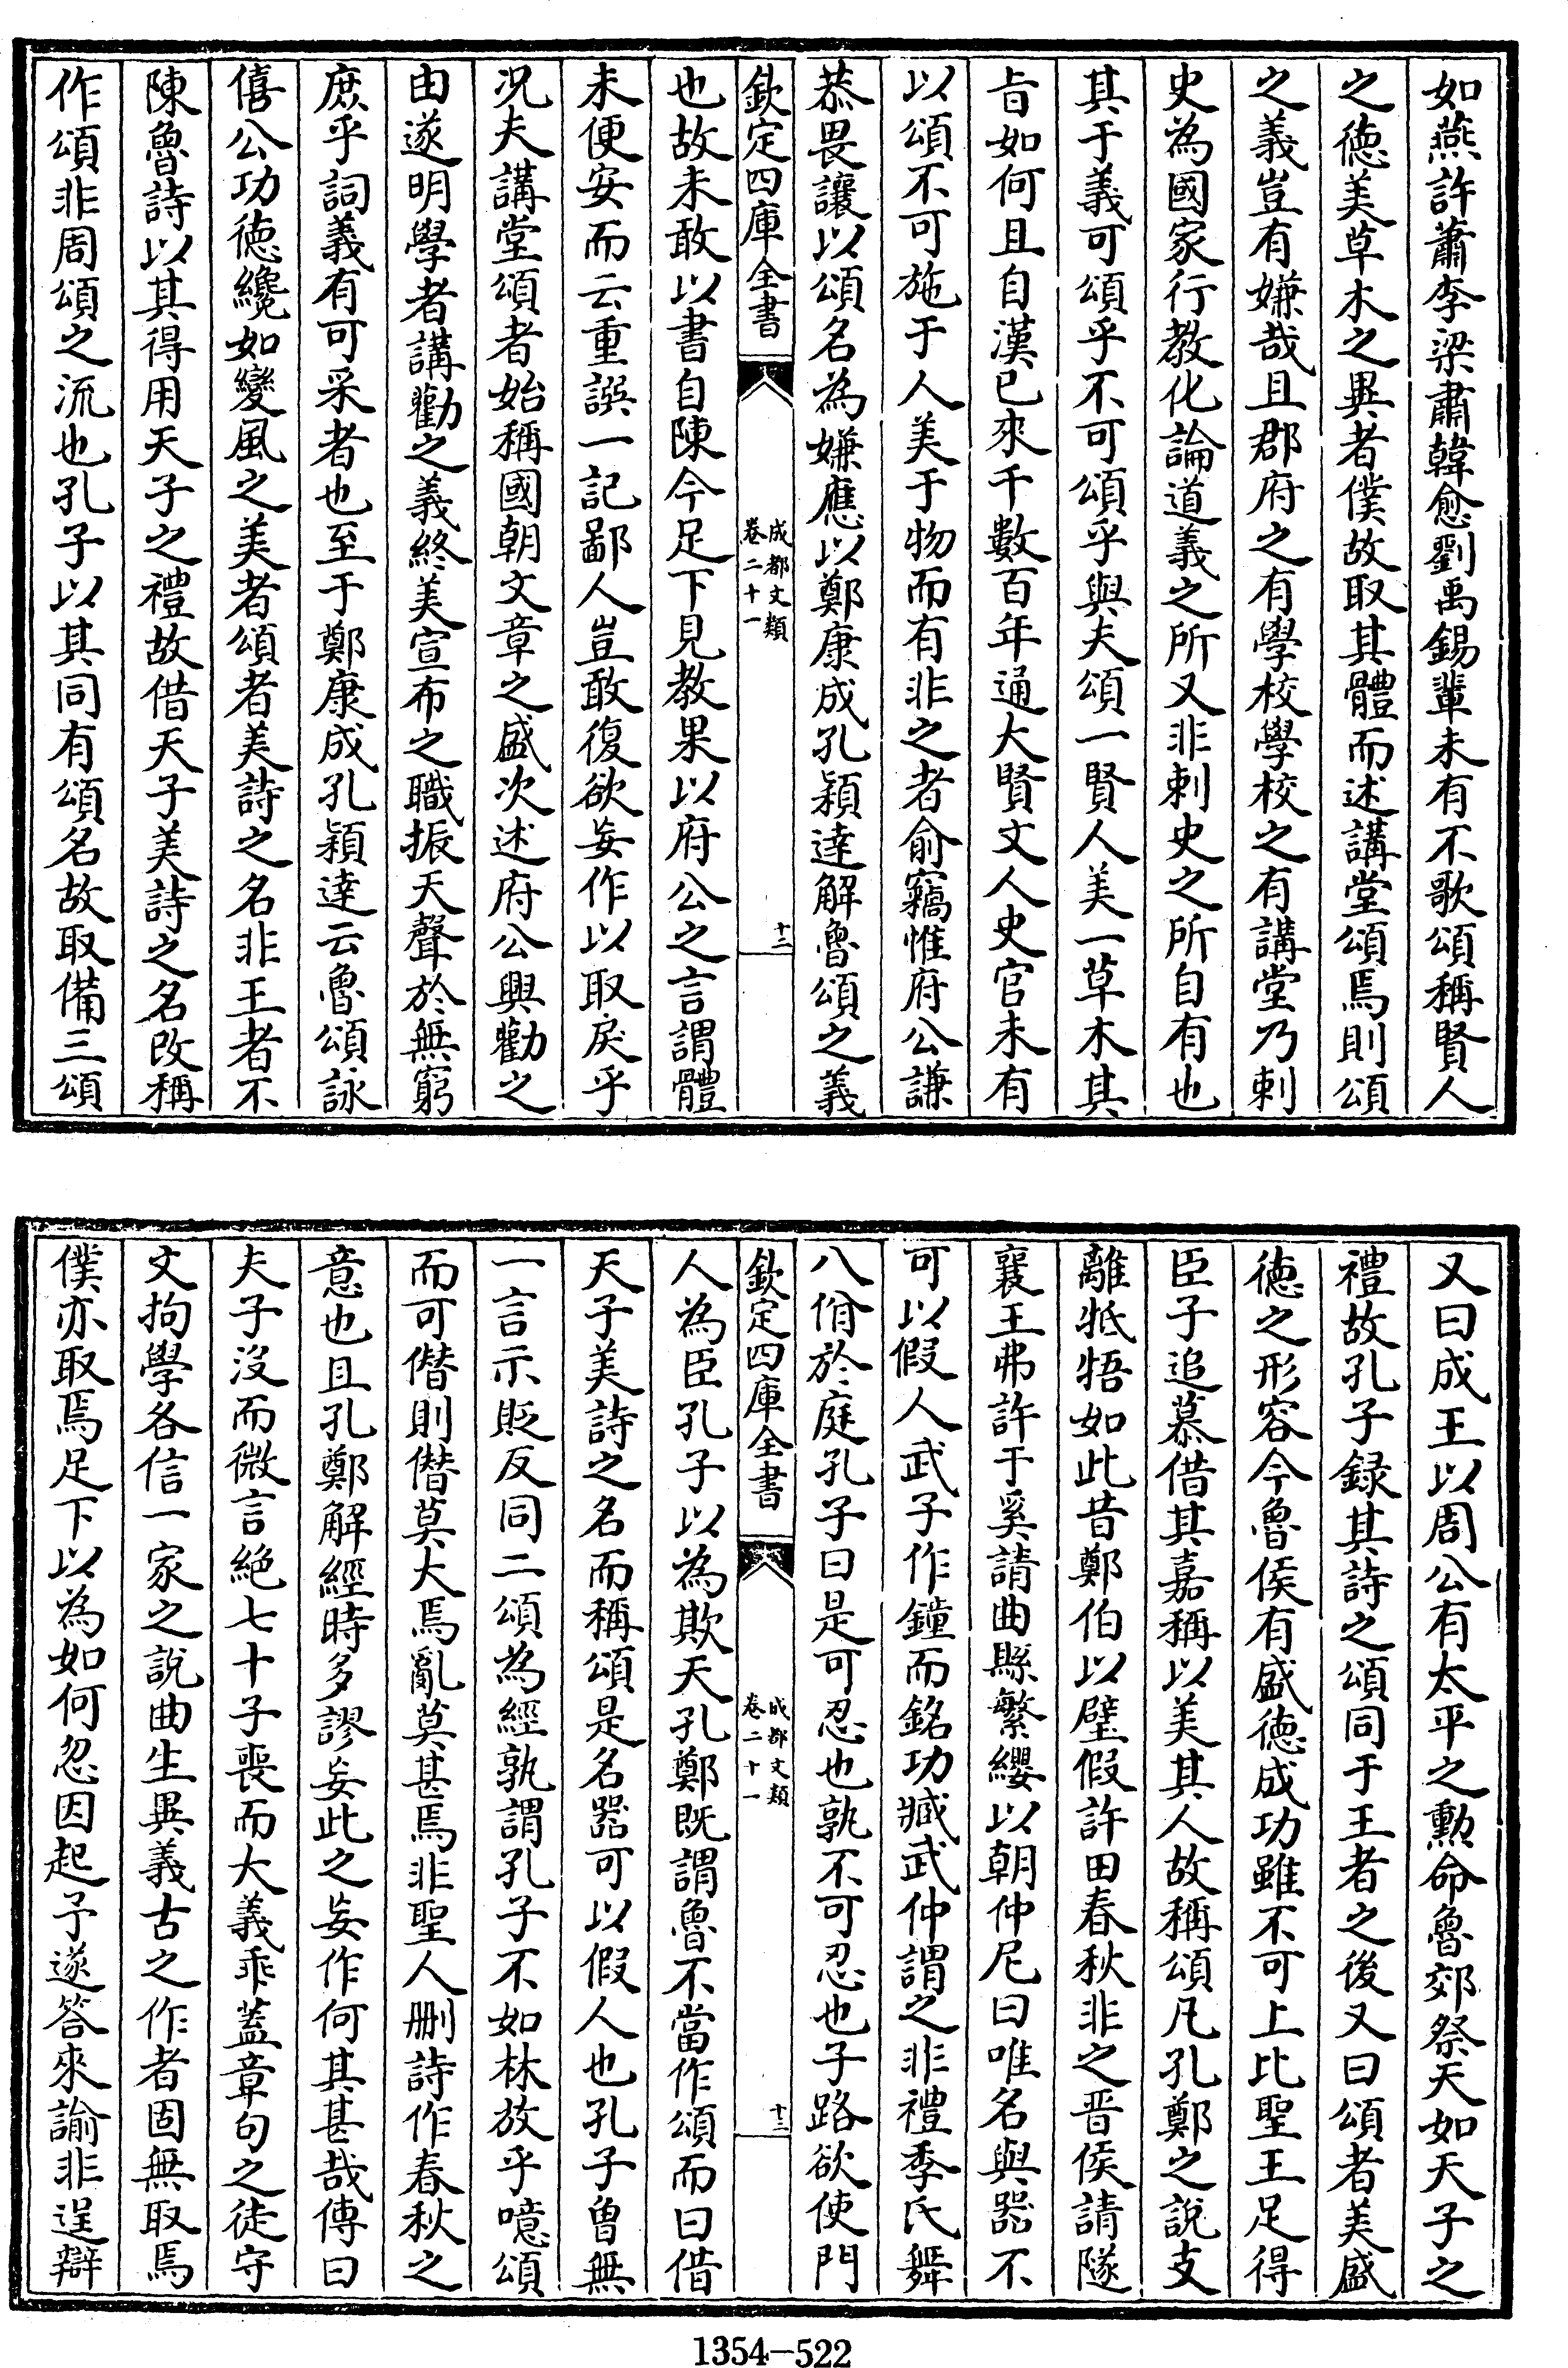 如燕許蕭李梁肅韓愈劉禹錫輩未有不歌頌稱賢人
之徳美草木之異者僕故取其體而述講堂頌焉則頌
之義豈有嫌哉且郡府之有學校學校之有講堂乃刺
史為國家行教化論道義之所又非刺史之所自有也
其于義可頌乎不可頌乎與夫頌一賢人美一草木其
旨如何且自漢已來千數百年通大賢文人史官未有
以頌不可施于人美于物而有非之者俞竊惟府公謙
恭畏讓以頌名為嫌應以鄭康成孔穎達解魯頌之義
欽定四庫全書
成都文類
卷二十一
十二
也故未敢以書自陳今足下見教果以府公之言謂體
未便安而云重譔一記鄙人豈敢復欲妄作以取戾乎
况夫講堂頌者始稱國朝文章之盛次述府公興勸之
由遂明學者講勸之義終美宣布之職振天聲於無窮
庶乎詞義有可采者也至于鄭康成孔穎達云魯頌詠
僖公功徳纔如變風之美者頌者美詩之名非王者不
陳魯詩以其得用天子之禮故借天子美詩之名改稱
作頌非周頌之流也孔子以其同有頌名故取備三頌
又曰成王以周公有太平之勲命魯郊祭天如天子之
禮故孔子録其詩之頌同于王者之後又曰頌者美盛
徳之形容今魯侯有盛徳成功雖不可上比聖王足得
臣子追慕借其嘉稱以美其人故稱頌凡孔鄭之說支
離牴牾如此昔鄭伯以璧假許田春秋非之晋侯請隧
襄王弗許于奚請曲縣繁纓以朝仲尼曰唯名與器不
可以假人武子作鐘而銘功臧武仲謂之非禮季氏舞
八佾於庭孔子曰是可忍也孰不可忍也子路欲使門
欽定四庫全書
成都文類
卷二十一
十三
人為臣孔子以為欺天孔鄭既謂魯不當作頌而曰借
天子美詩之名而稱頌是名器可以假人也孔子曽無
一言示貶反同二頌為經孰謂孔子不如林放乎噫頌
而可僭則僭莫大焉亂莫甚焉非聖人刪詩作春秋之
意也且孔鄭解經時多謬妄此之妄作何其甚哉傳曰
夫子沒而微言絶七十子喪而大義乖蓋章句之徒守
文拘學各信一家之說曲生異義古之作者固無取焉
僕亦取焉足下以為如何忽因起予遂答來諭非逞辯
1354-522